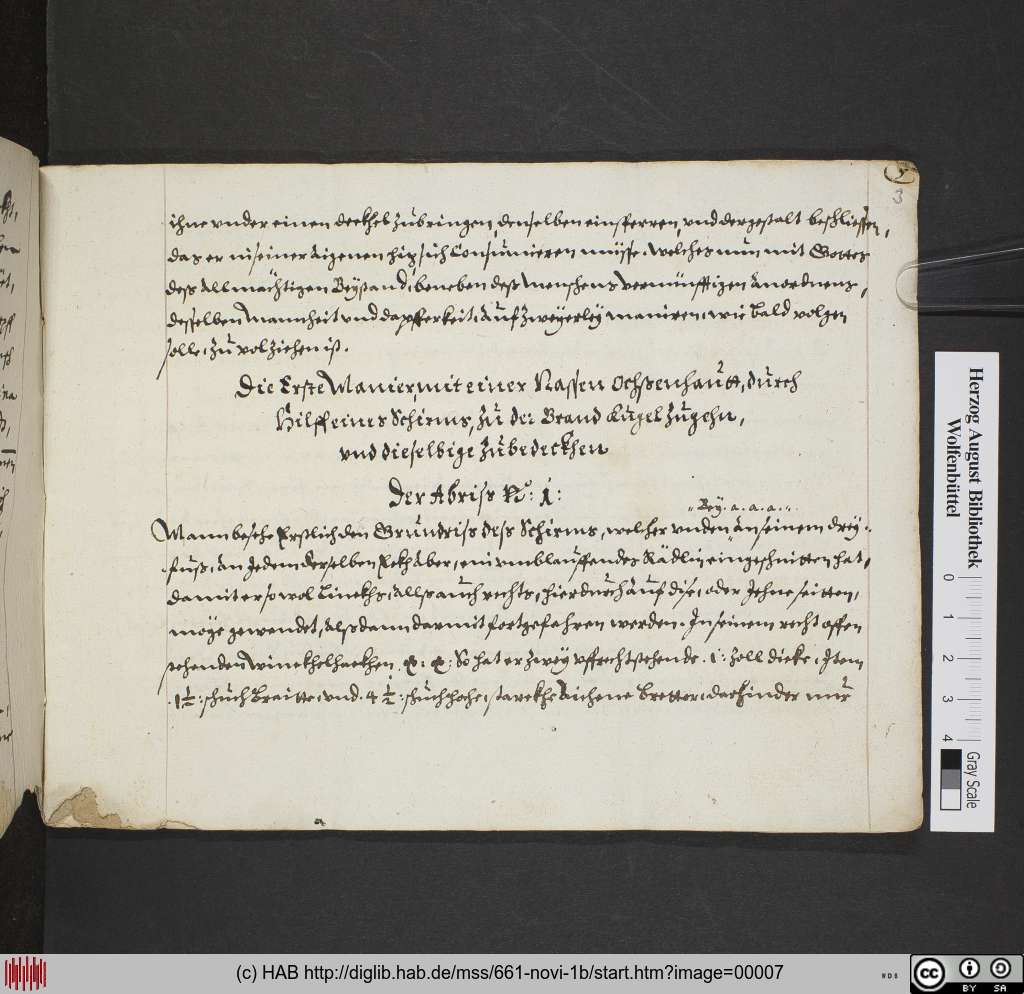 3
ihne vnder einen deckhel zubringen, denselben einsperren, vnd dergestalt beschliessen,
das er in seiner aigenen hiz sich Consumieren müsse. welches nun mit Gottes
dess Allmächtigen Beystand, beneben dess menschens vernünfftigen Anordnens,
desselben Mannheit vnd dapfferkeit, Auf zweyerley manieren, wie bald volgen
solle, zu volziehen ist.
Die Erste Manier, mit einer Nassen Ochssenhautt, durch
Hilff eines Schirms, zu der Brand Kugel zugehn,
vnd dieselbige zubedeckhen
Der Abriss No: 1:
Bey. a. a. a.
Mann besehe Erstlich den Grundriss dess Schirms, welcher vnden an seinem drey-
fuss, An Jedem derselben Eekh Aber, ein vmblauffendes Rädlin eingeschnitten hat,
damit er so wol Linckhs, Allss auch rechts, hierdurch auf dise, oder Jehne seitten,
möge gewendet, Alss dann darmit fortgefahren werden. In seinem recht offen
stehenden Winckhelhackhen. So hat er zwey vffrechtstehende. 1: zoll dicke, Item
1½: schuch Braitte, vnd. 4½: schuch hohe, starckhe Aichene Bretter, darhinder nur
Herzog August Bibliothek
Wolfenbüttel
0 1 2 3 4
Gray Scale
(c) HAB http://diglib.hab.de/mss/661-novi-1b/start.htm?image=00007
WDB
cc BY SA